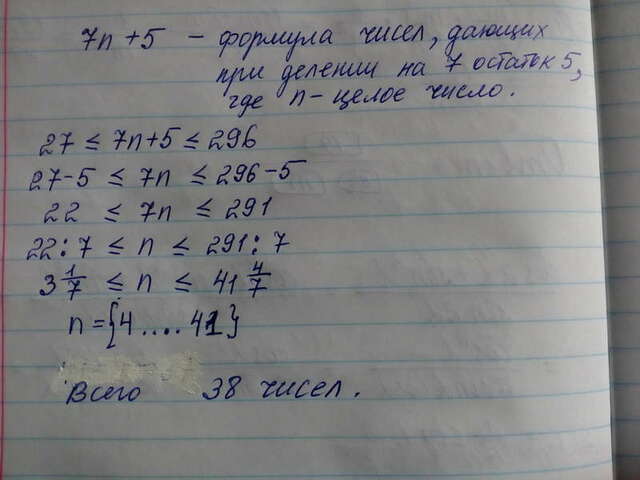 7n+5 - формула чисел, дающих
при делении на 7 остаток 5,
где n - целое число.
27 ≤ 7n+5 ≤ 296
27-5 ≤ 7n ≤ 296-5
22 ≤ 7n ≤ 291
22:7 ≤ n ≤ 291:7
3 1/7 ≤ n ≤ 41 4/7
n={4....41}
Всего 38 чисел.